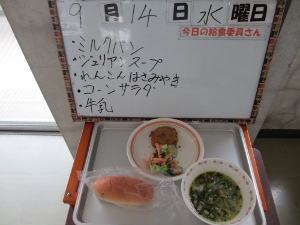 9月14日水曜日
今日の給食委員さん
・ミルクパン
・ジュリアンスープ
・れんこんはさみやき
・コーンサラダ
・牛乳